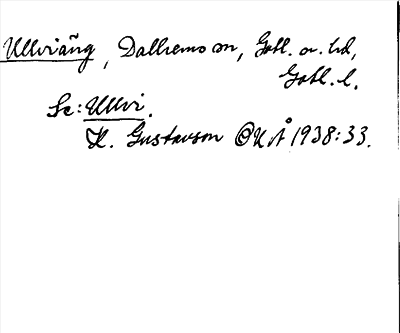 Ullviäng, Dalhems sn, Gotl. n. hd,
Gotl. l.
Se: Ullvi.
H. Gustavson ONÅ 1938:33.